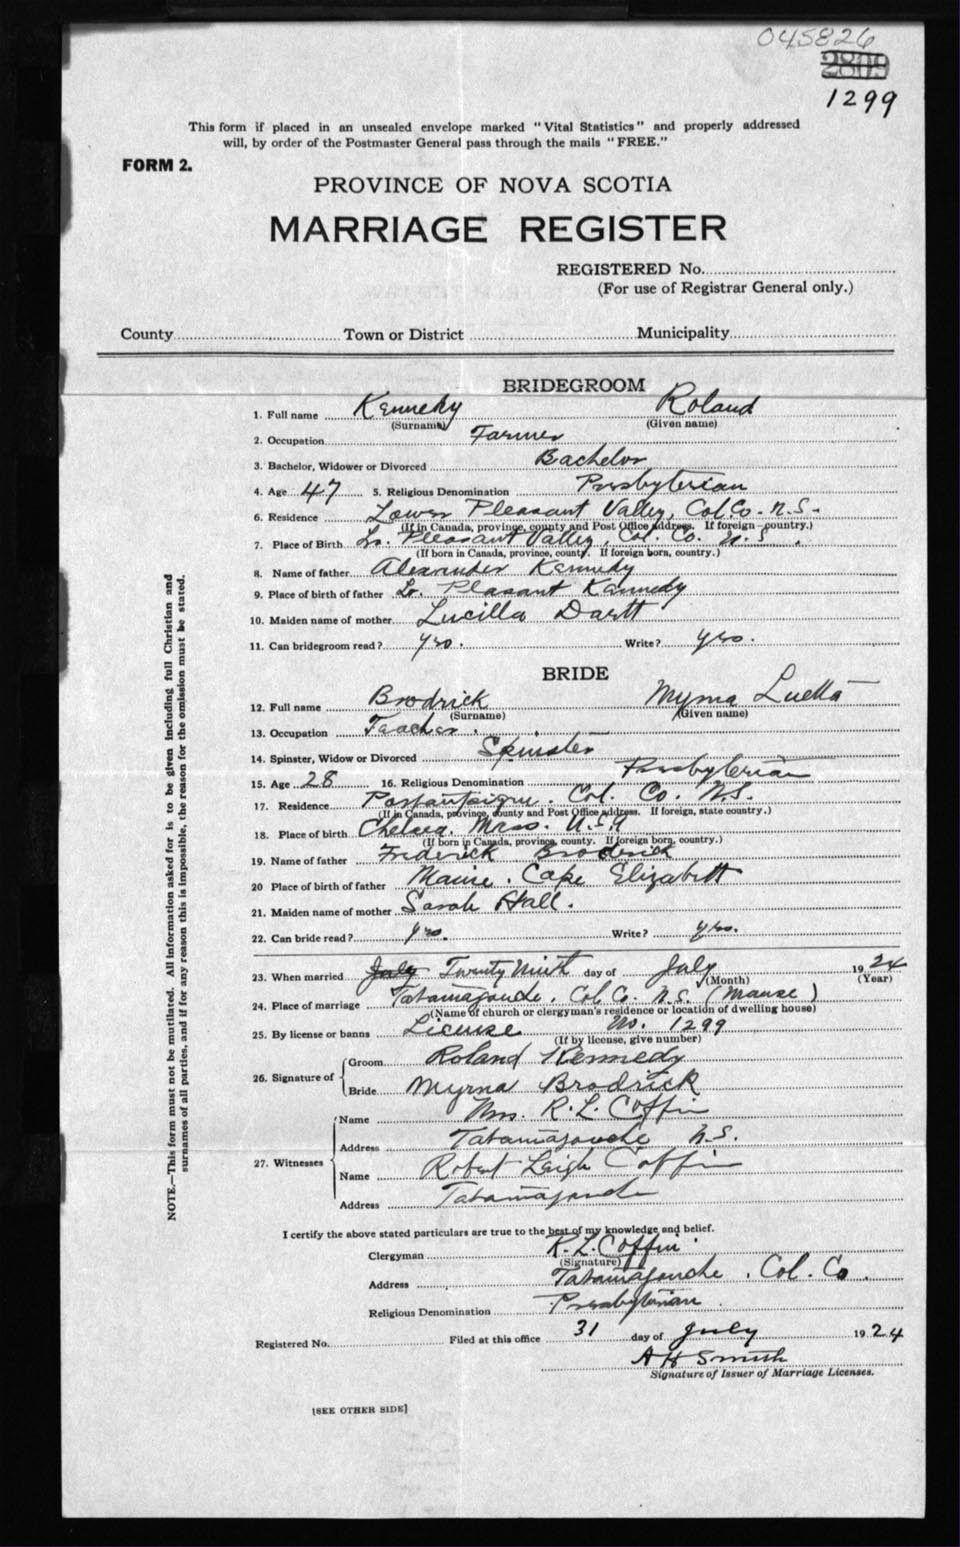 045826
2809
1299
This form if placed in an unsealed envelope marked "Vital Statistics" and properly addressed
will, by order of the Postmaster General pass through the mails "FREE."
FORM 2.
PROVINCE OF NOVA SCOTIA
MARRIAGE REGISTER
REGISTERED No.
(For use of Registrar General only.)
County Town or District Municipality
BRIDEGROOM
1. Full name Kennedy Roland
(Surname) (Given name)
2. Occupation Farmer
3. Bachelor, Widower or Divorced Bachelor
4. Age 47 5. Religious Denomination Presbyterian
6. Residence Lower Pleasant Valley, Col. Co. N.S.
(If in Canada, province, county and Post Office address. If foreign country.)
7. Place of Birth Lr. Pleasant Valley, Col. Co. N.S.
(If born in Canada, province, county. If foreign born, country.)
8. Name of father Alexander Kennedy
9. Place of birth of father Lr. Pleasant Kennedy
10. Maiden name of mother Lucilla Dartt
11. Can bridegroom read? yes. Write? yes.
BRIDE
12. Full name Brodrick Myrna Luella
(Surname) (Given name)
13. Occupation Teacher.
14. Spinster, Widow or Divorced Spinster
15. Age 28 16. Religious Denomination Presbyterian
17. Residence Portaupique. Col. Co. N.S.
(If in Canada, province, county and Post Office address. If foreign, state country.)
18. Place of birth Chelsea. Mass. U.S.A
(If born in Canada, province, county. If foreign born, country.)
19. Name of father Frederick Brodrick
20 Place of birth of father Maine. Cape Elizabeth
21. Maiden name of mother Sarah Hall.
22. Can bride read? yes. Write? yes.
23. When married July Twenty Ninth day of July 1924
(Month) (Year)
24. Place of marriage Tatamagouche, Col. Co. N.S. (Manse)
(Name of church or clergyman's residence or location of dwelling house)
25. By license or banns License No. 1299
(If by license, give number)
26. Signature of Groom Roland Kennedy
Bride Myrna Brodrick
27. Witnesses Name Mrs. R. L. Coffin
Address Tatamagouche N.S.
Name Robert Leigh Coffin
Address Tatamagouche
I certify the above stated particulars are true to the best of my knowledge and belief.
Clergyman R. L. Coffin
(Signature)
Address Tatamagouche, Col. Co.
Religious Denomination Presbyterian
Registered No. Filed at this office 31 day of July 1924
A H Smith
Signature of Issuer of Marriage Licenses.
[SEE OTHER SIDE]
NOTE.—This form must not be mutilated. All information asked for is to be given including full Christian and
surnames of all parties, and if for any reason this is impossible, the reason for the omission must be stated.